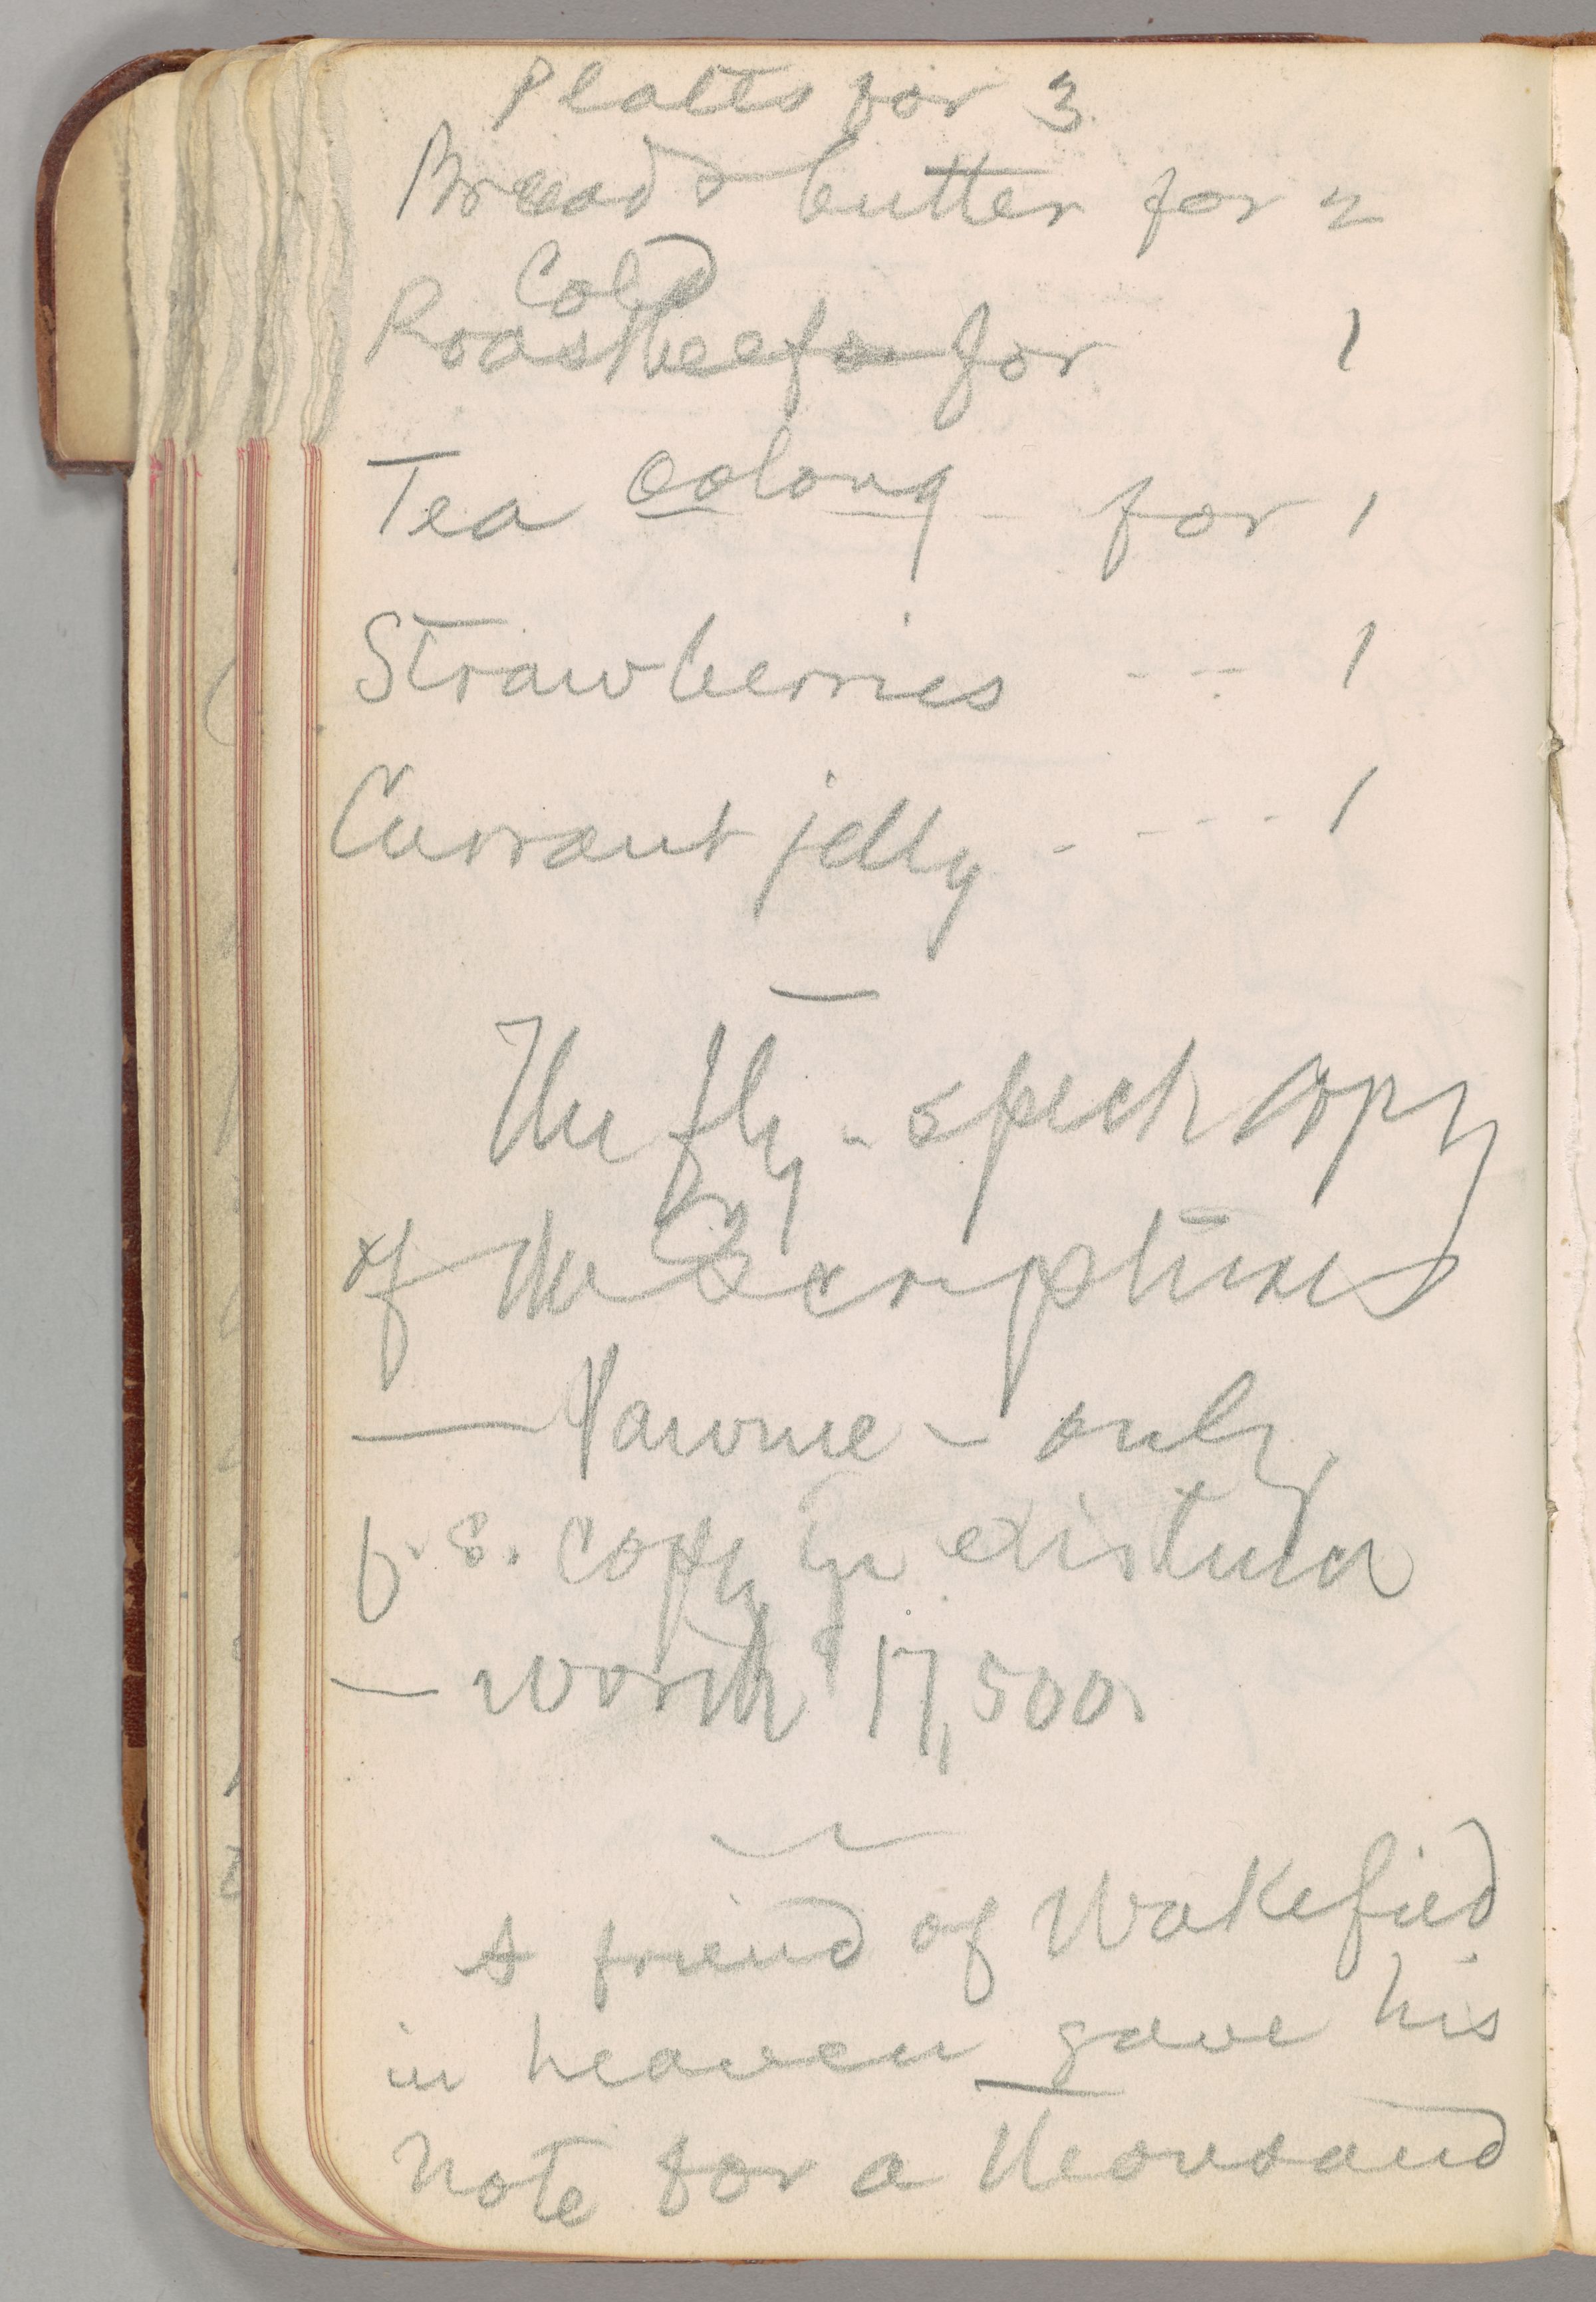 Plates for 3.
Bread & butter for 2
Cold
Roastbeef for 1
Tea Oolong - for 1
Strawberries - - - 1
Currant jelly - - - - 1
The fly-speck copy
of the Scriptures
— - only
f.s. copy in
— worth 17,500.
A friend of Wakefied
in heaven gave his
note for a thousand